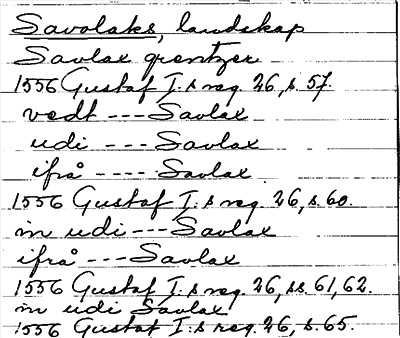 Savolaks, landskap
Savlax grentzer
1556 Gustaf I.s reg. 26, s. 57.
vedt --- Savlax
udi --- Savlax
ifrå ---- Savlax
1556 Gustaf I.s reg. 26, s. 60.
in udi --- Savlax
ifrå --- Savlax
1556 Gustaf I.s reg. 26, ss. 61, 62.
in udi Savlax
1556 Gustaf I.s reg. 26, s. 65.